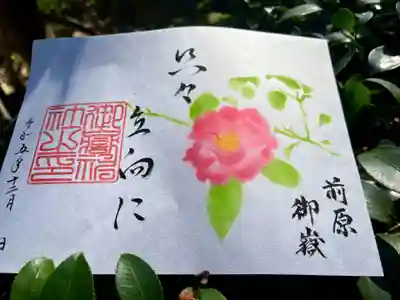 前原
御嶽
只々
直向に
御嶽神
社之印
令和五年十二月 日